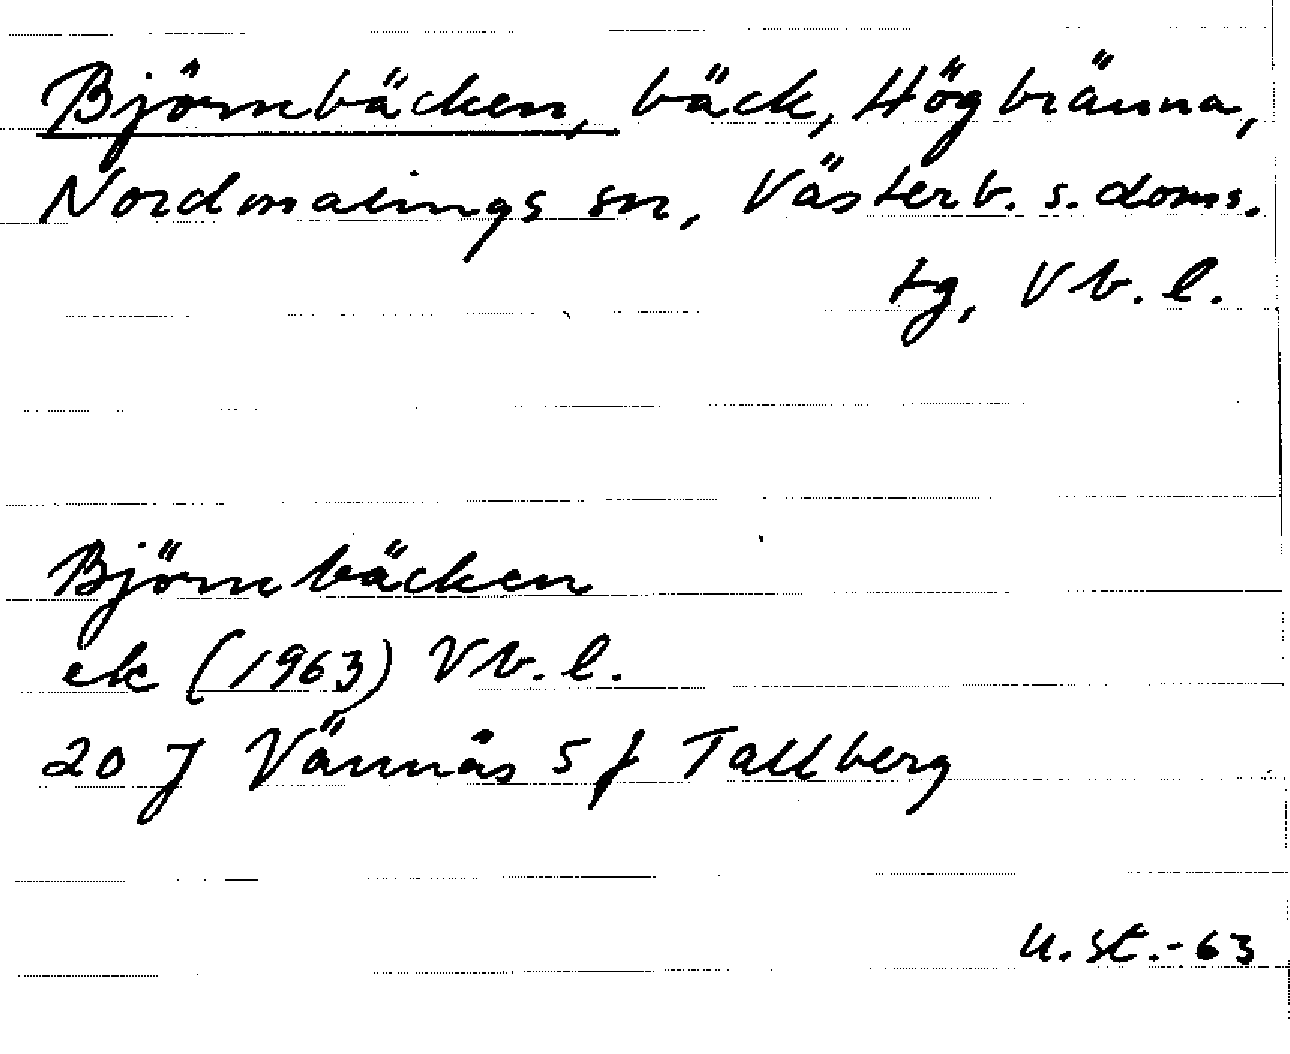 Björnbäcken, bäck, Högbränna,
Nordmalings sn, Västerb. s. doms.
tg, Vb. l.
Björnbäcken
ek (1963) Vb. l.
20 J Vännäs 5 f Tallberg
U. St. - 63